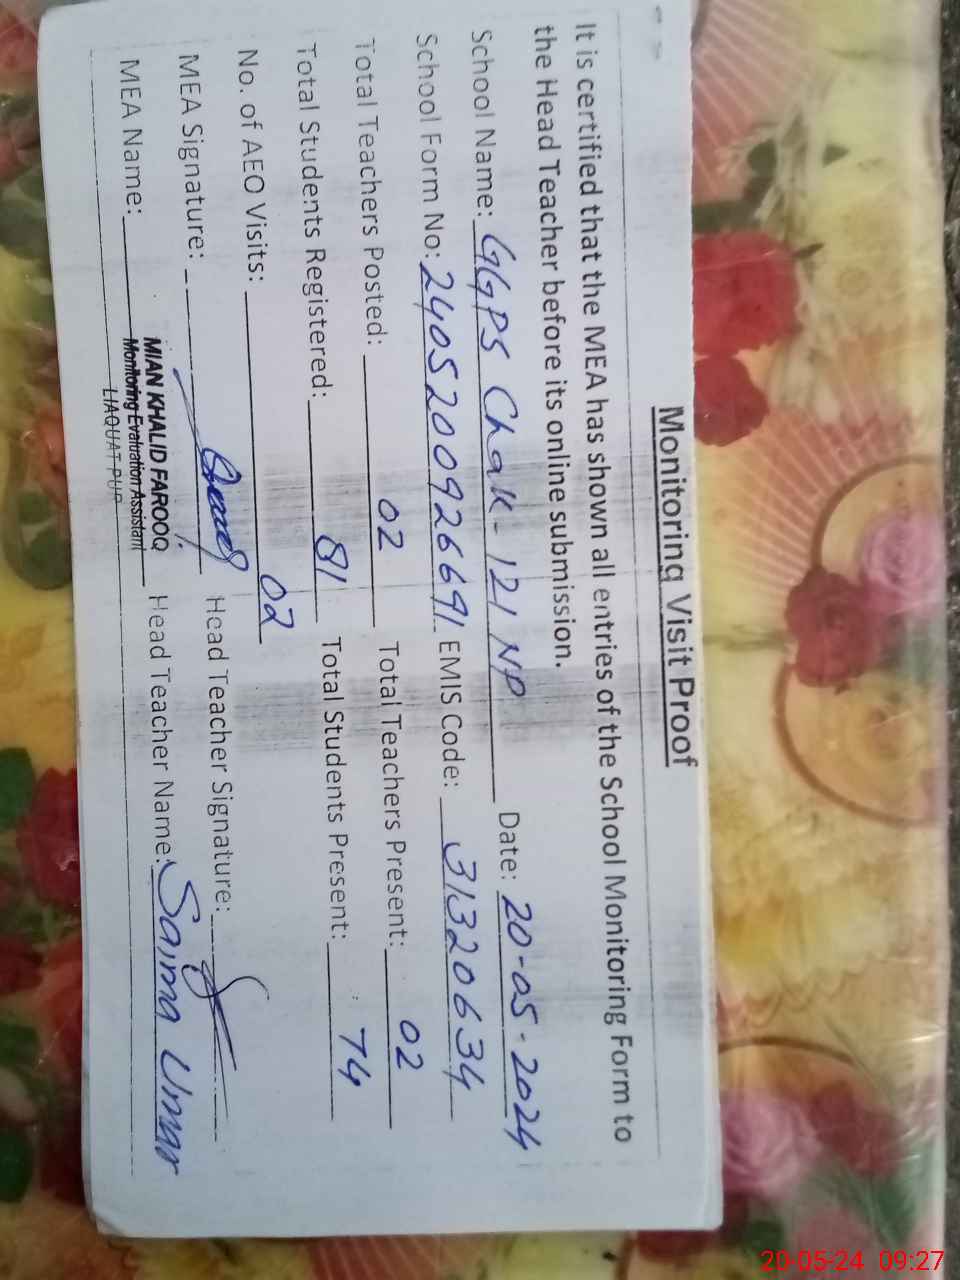 Monitoring Visit Proof
It is certified that the MEA has shown all entries of the School Monitoring Form to
the Head Teacher before its online submission.
School Name: GGPS Chak-121 NP Date: 20-05-2024
School Form No: 2405200926691 EMIS Code: 31320634
Total Teachers Posted: 02 Total Teachers Present: 02
Total Students Registered: 81 Total Students Present: 74
No. of AEO Visits: 02
MEA Signature: Head Teacher Signature:
MEA Name: MIAN KHALID FAROOQ Head Teacher Name: Saima Umar
Monitoring Evaluation Assistant
LIAQUAT PUR
20-05-24 09:27